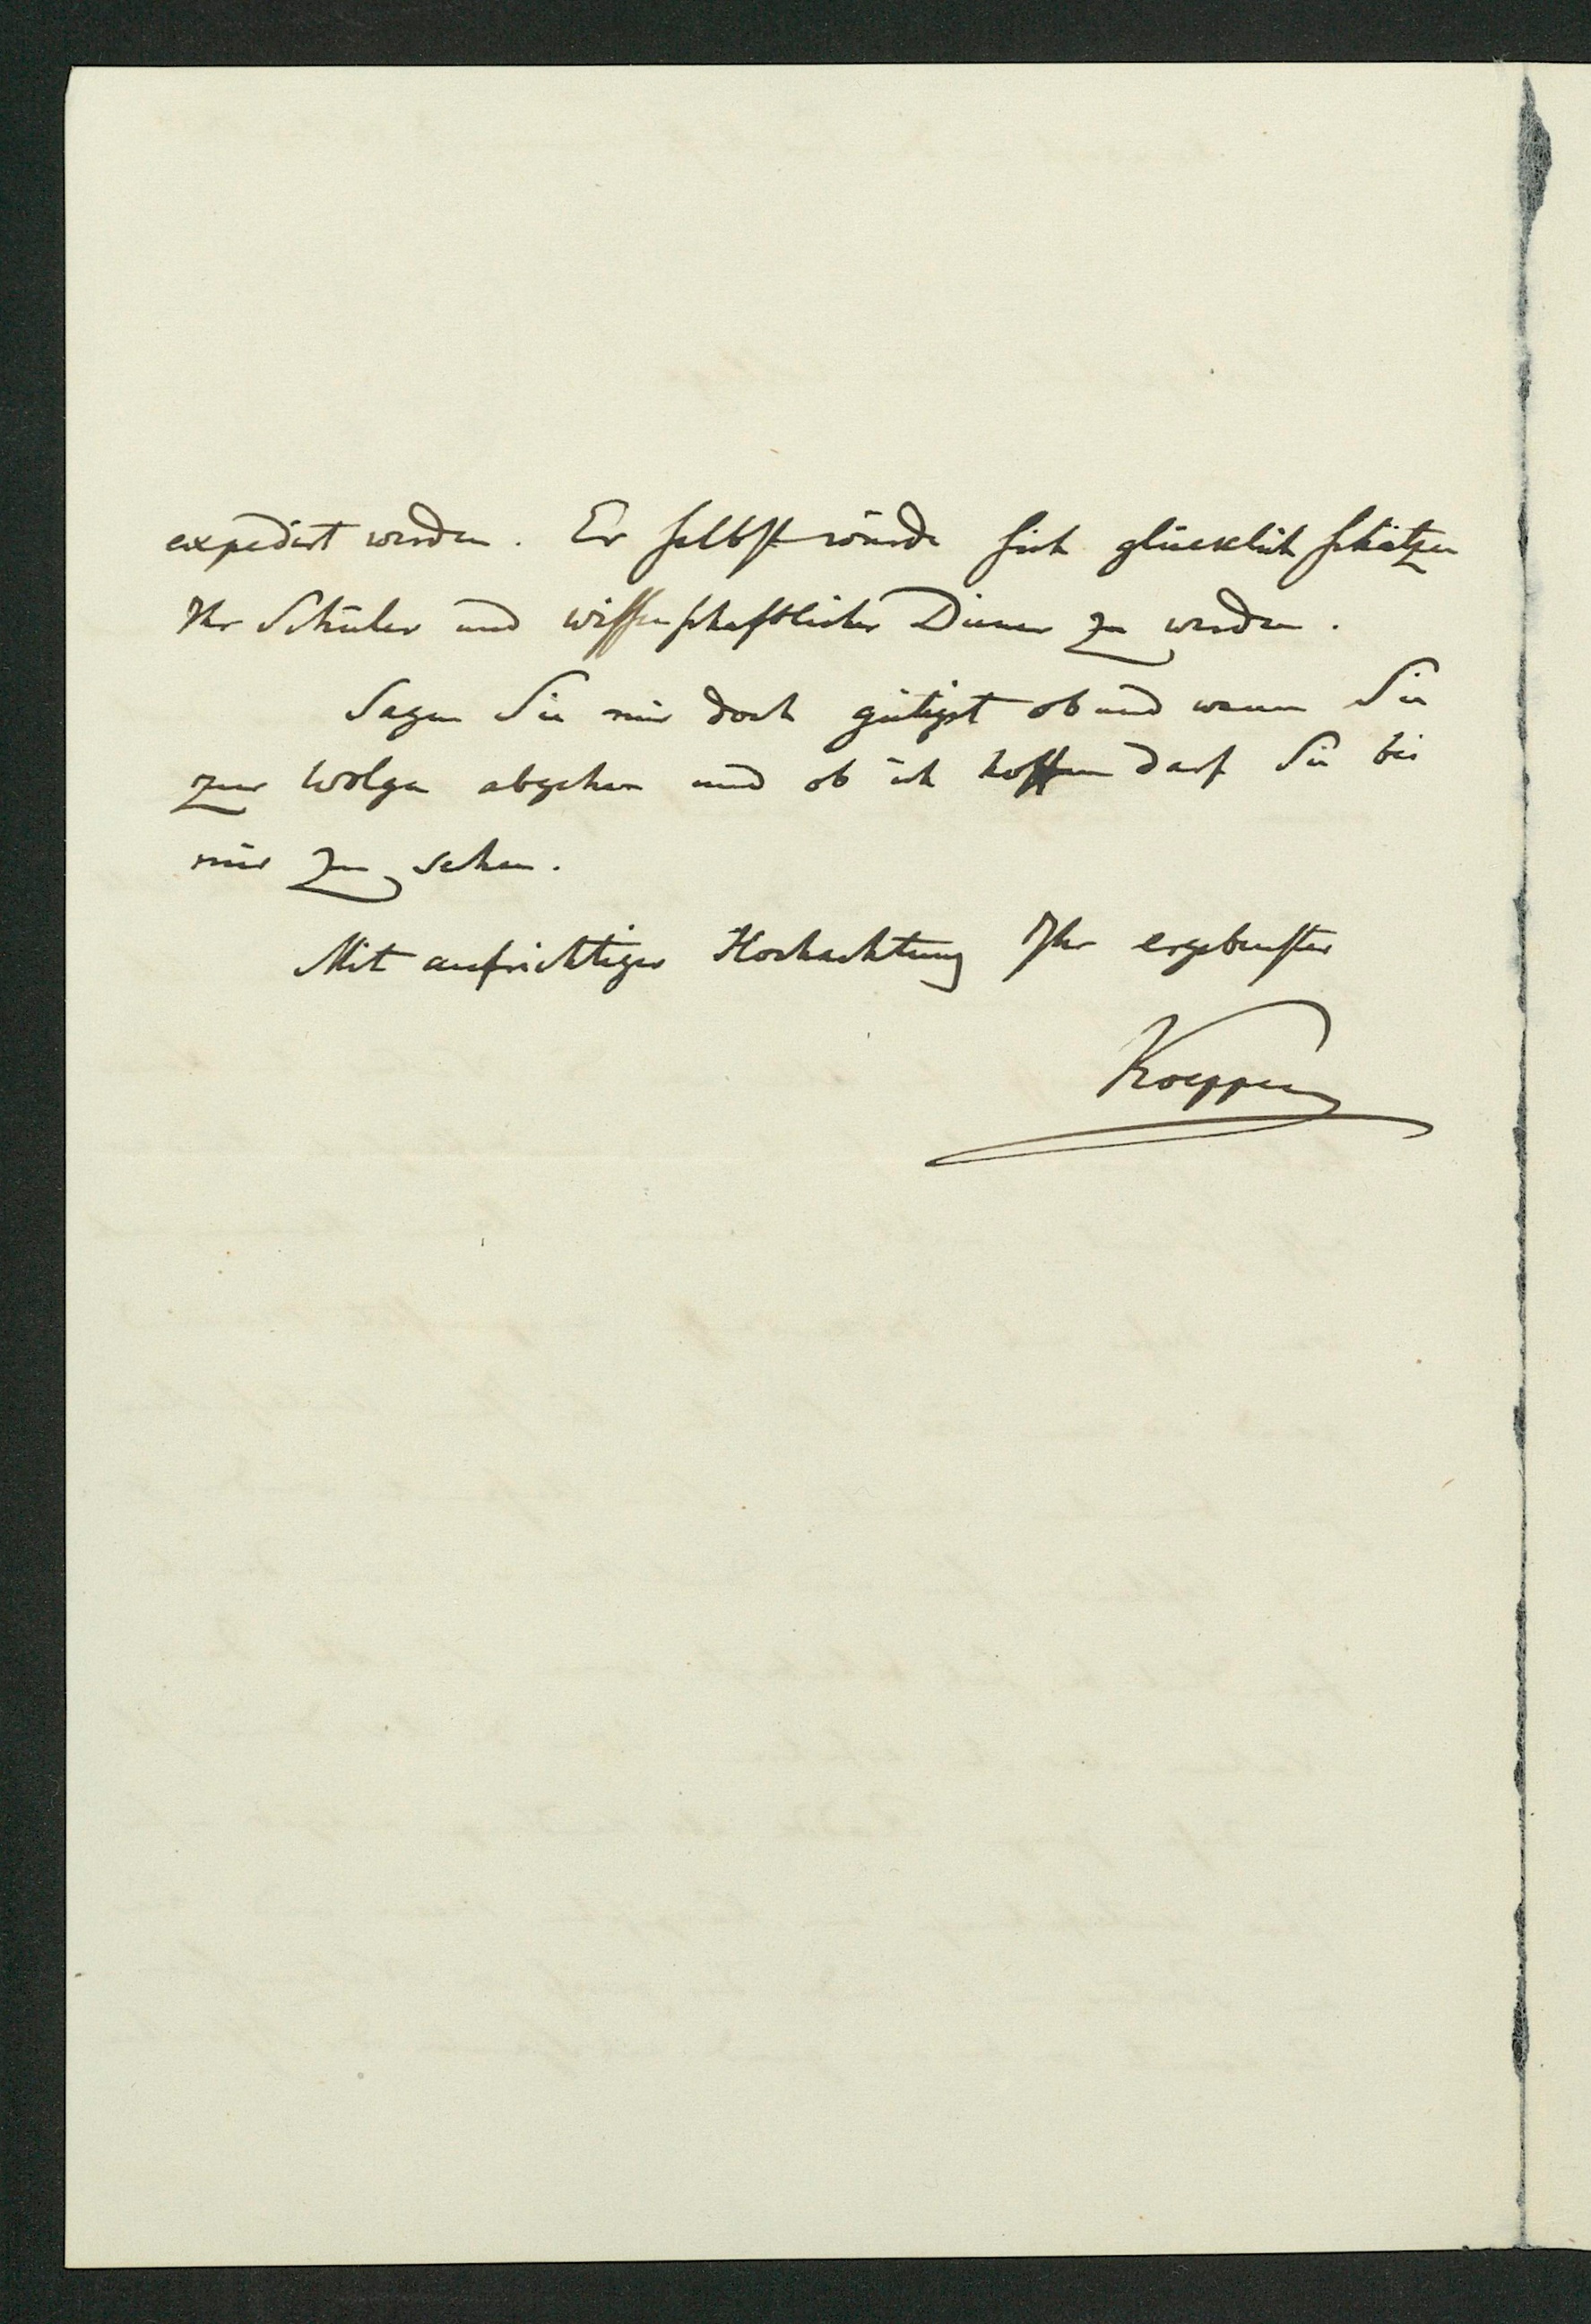 expedirt werden. Er selbst würde sich glücklich schätzen
Ihr Schüler und wissenschaftlicher Diener zu werden.
Sagen Sie mir doch gütigst ob und wann Sie
zur Wolga abgehen und ob ich hoffen darf Sie bei
mir zu sehen.
Mit aufrichtiger Hochachtung Ihr ergebenster
Koeppen